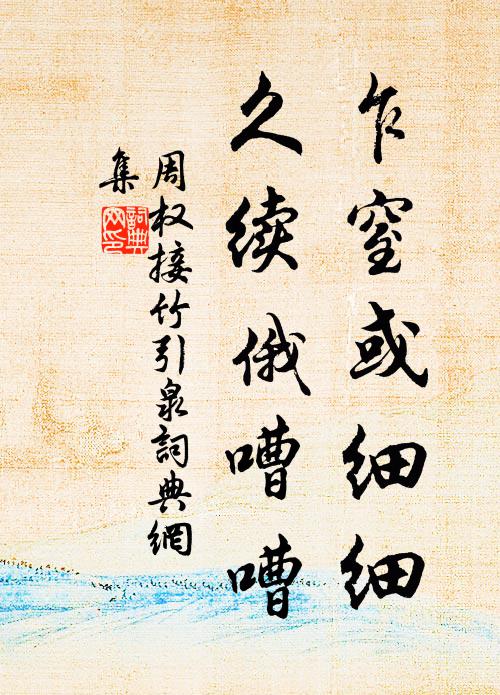 乍窒或细细
久续俄嘈嘈
周权接竹引泉词典網
集
詞典網印